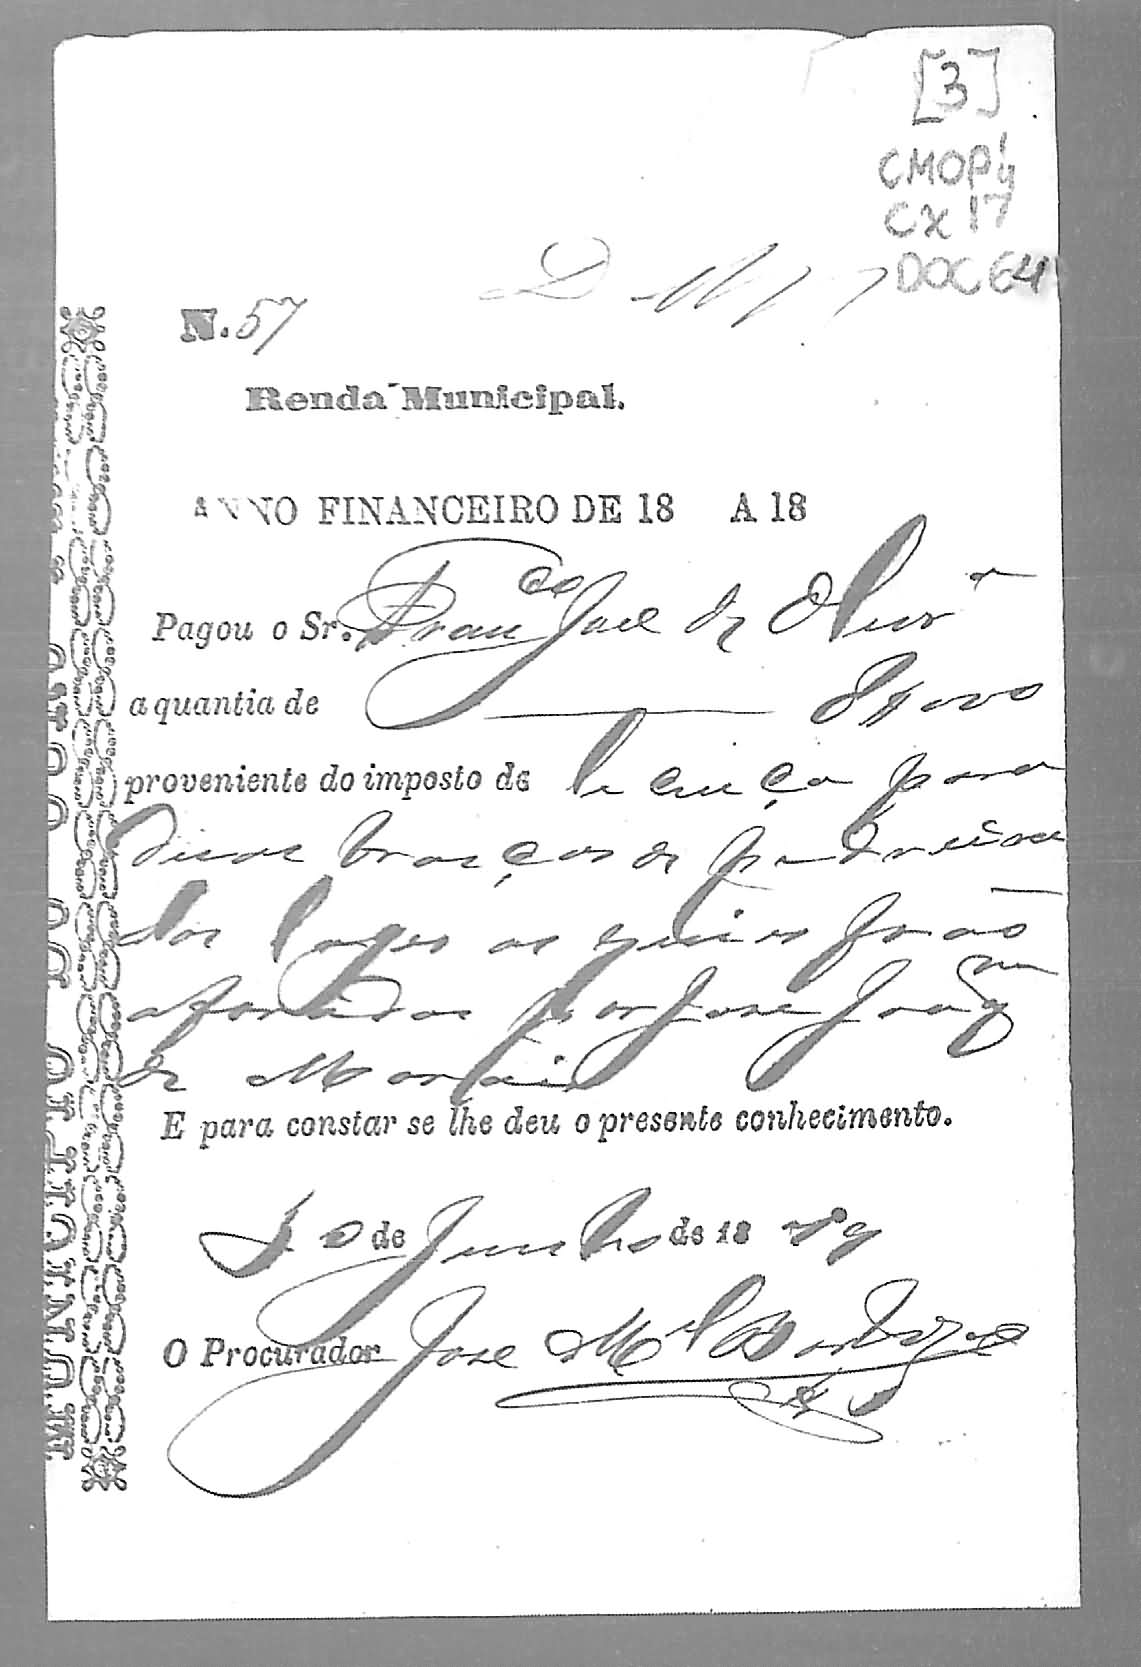 [3]
CMOP
CX 17
DOC 64
N. 57
Renda Municipal.
ANNO FINANCEIRO DE 18 A 18
Pagou o Sr. Franco José de Olivra
a quantia de 8$000
proveniente do imposto de licença para
duas braças de
das lages as quies forão
aforadas por José Joaqm
de Morais
E para constar se lhe deu o presente conhecimento.
10 de Junho de 1879
O Procurador José Mel
MUNICIPIO DO OURO